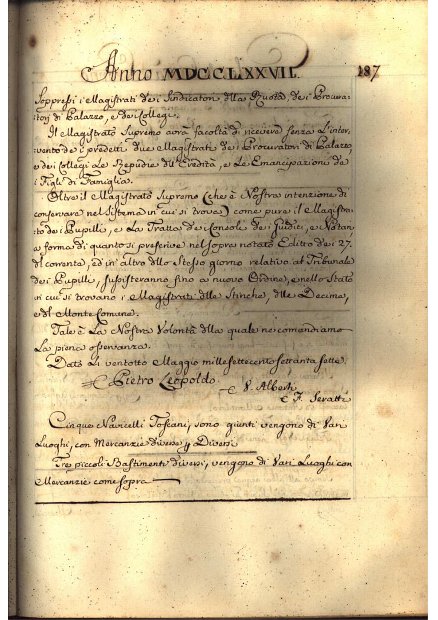 Anno MDCCLXXVII. 187
Soppressi i Magistrati dei Sindicatori della Ruota, dei Procura=
tori di Palazzo, e dei Collegi.
Il Magistrato Supremo avrà facoltà di ricevere senza L'inter=
vento dei predetti due Magistrati dei Procuratori di Palazzo,
e dei Collegi Le Repudie dell'Eredità, e Le Emancipazioni de
i Figli di Famiglia.
Oltre il Magistrato Supremo (che è Nostra intenzione di
conservare nel Sistema in cui si trova) come pure il Magistra=
to dei Pupilli, e La Tratta dei Console dei Giudici, e Notari
a forma di quanto si prescrive nel sopra notato Editto dei 27.
del corrente, ed in altro dello Stesso giorno relativo al Tribunale
dei Pupilli, sussisteranno fino a nuovo Ordine, e nello Stato
in cui si trovano i Magistrati delle Stinche, delle Decime,
e del Monte Comune.
Tale è La Nostra Volontà della quale ne comandiamo
La piena osservanza.
Dat. Li ventotto Maggio millesettecentosettantasette.
Pietro Leopoldo.
V. Alberti
F. Seratti
Cinque Navicelli Toscani, sono giunti vengono di Vari
Luoghi, con Mercanzie diverse p Diversi
Tre piccoli Bastimenti diversi, vengono di Vari Luoghi con
Mercanzie come sopra